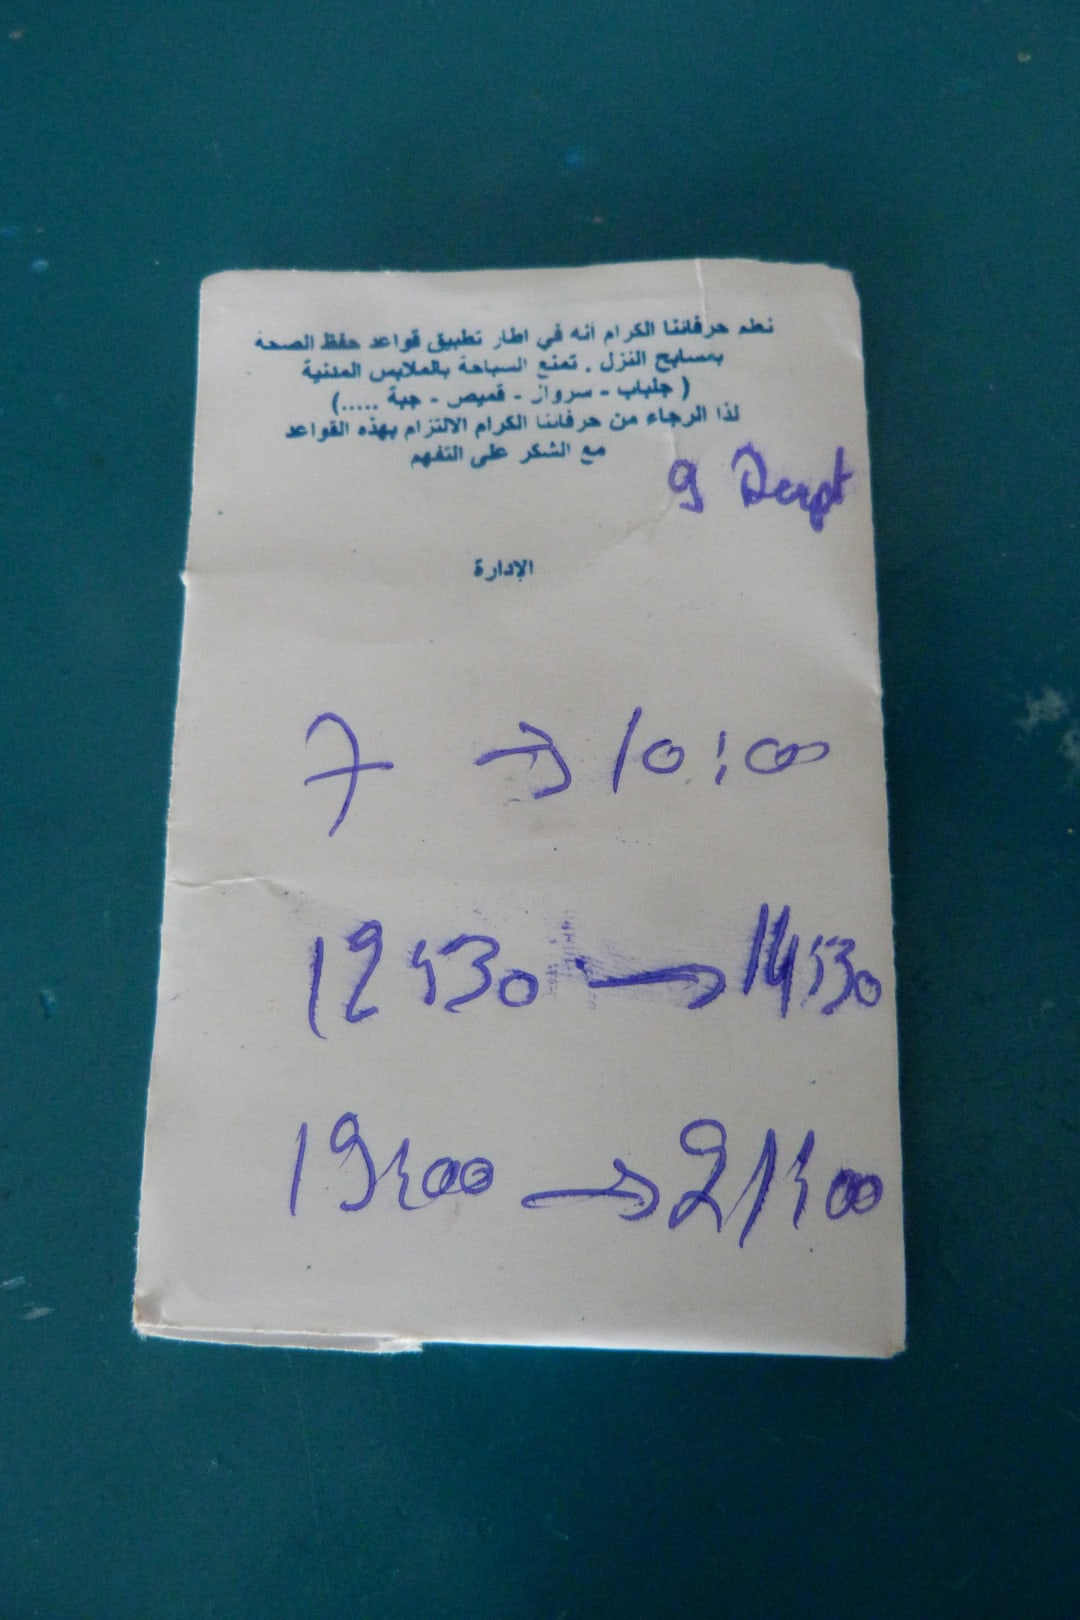 نعلم حرفائنا الكرام أنه في إطار تطبيق قواعد حفظ الصحة
بمسابح النزل . تمنع السباحة بالملابس المدنية
( جلباب - سروال - قميص - جبة .....)
لذا الرجاء من حرفائنا الكرام الالتزام بهذه القواعد
مع الشكر على التفهم
9
الإدارة
7 → 10:00
12:30 → 14:30
19:00 → 21:00